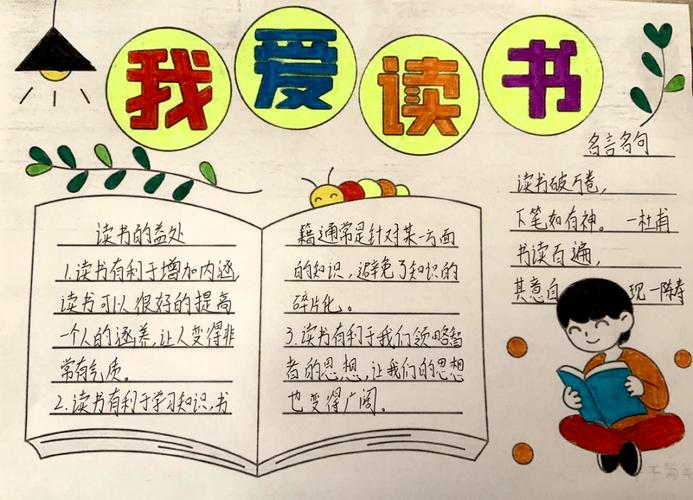 我爱读书
读书的益处
1.读书有利于增加内涵,
读书可以很好的提高
一个人的涵养,让人变得非
常有气质。
2.读书有利于学习知识,书
籍通常是针对某一方面
的知识,避免了知识的
碎片化。
3.读书有利于我们领略智
者的思想,让我们的思想
也变得广阔。
名言名句
读书破万卷,
下笔如有神。一杜甫
书读百遍,
其意自 现一陈寿